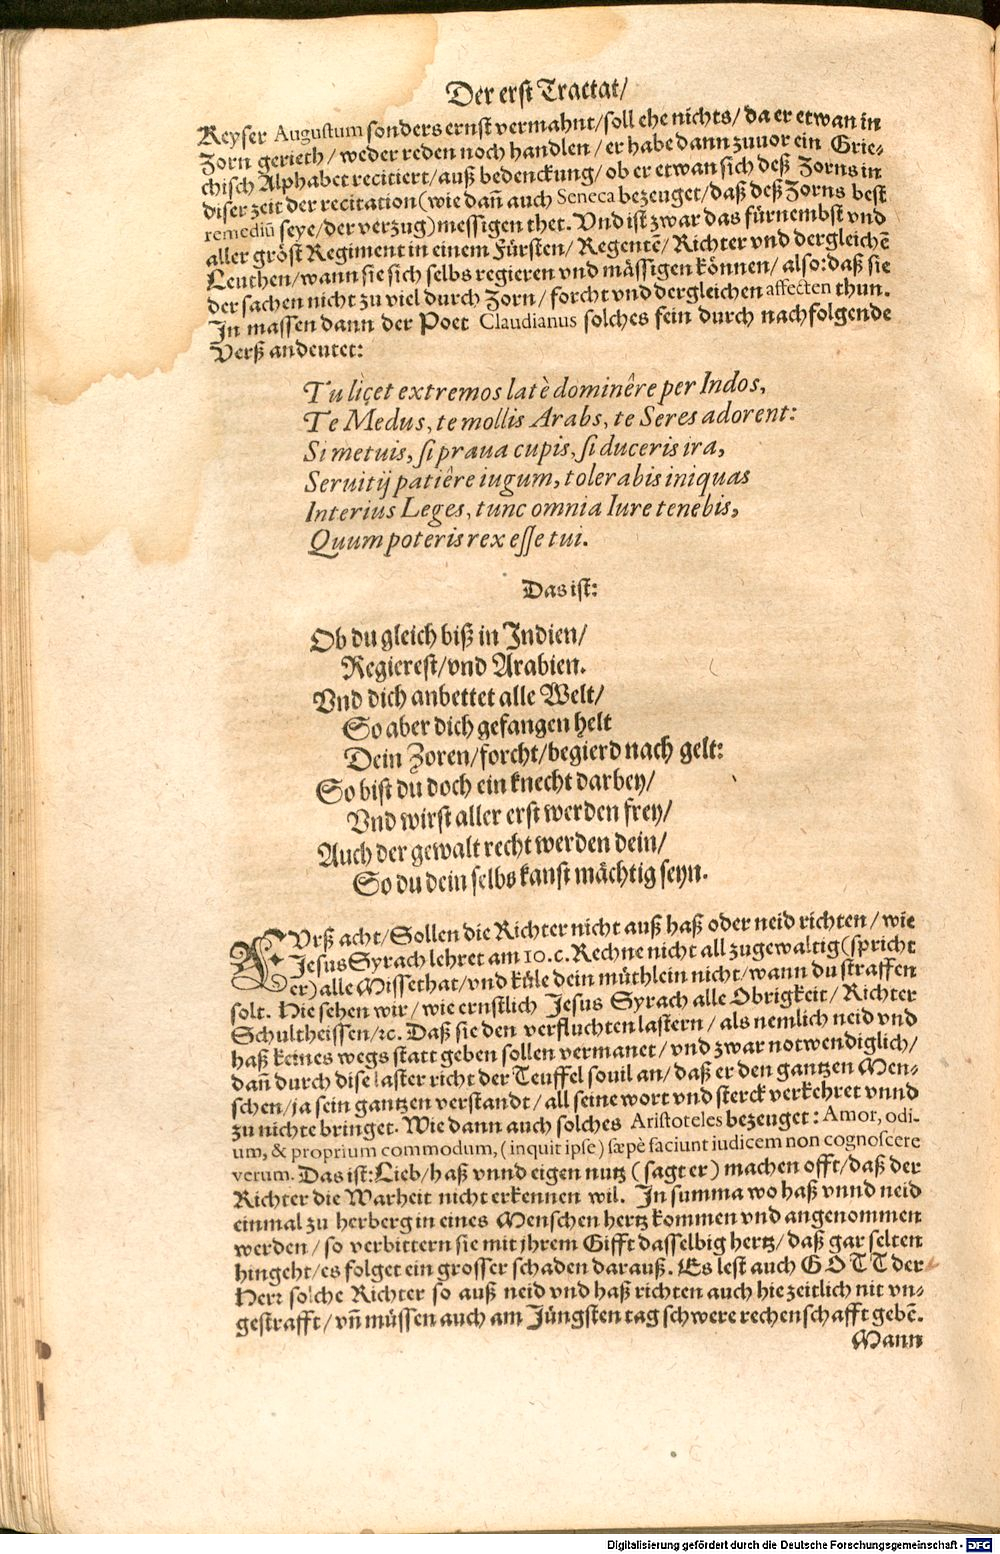 Der erst Tractat/
Keyser Augustum sonders ernst vermahnt/soll ehe nichts/da er etwan in
Zorn gerieth/weder reden noch handlen/er habe dann zuuor ein Grie-
chisch Alphabet recitiert/auß bedenckung/ob er etwan sich deß Zorns in
diser zeit der recitation (wie dañ auch Seneca bezeuget/daß deß Zorns best
remediũ seye/der verzug) messigen thet. Vnd ist zwar das fürnembst vnd
aller gröst Regiment in einem Fürsten/Regentẽ/Richter vnd dergleichẽ
Leuthen/wann sie sich selbs regieren vnd mässigen können/also: daß sie
der sachen nicht zu viel durch Zorn/forcht vnd dergleichen affecten thun.
In massen dann der Poet Claudianus solches fein durch nachfolgende
Verß andeutet:
Tu liçet extremos latè dominêre per Indos,
Te Medus, te mollis Arabs, te Seres adorent:
Si metuis, si praua cupis, si duceris ira,
Seruitij patiêre iugum, tolerabis iniquas
Interius Leges, tunc omnia Iure tenebis,
Quum poteris rex esse tui.
Das ist:
Ob du gleich biß in Indien/
Regierest/vnd Arabien.
Vnd dich anbettet alle Welt/
So aber dich gefangen helt
Dein Zoren/forcht/begierd nach gelt:
So bist du doch ein knecht darbey/
Vnd wirst aller erst werden frey/
Auch der gewalt recht werden dein/
So du dein selbs kanst mächtig seyn.
FVrß acht/Sollen die Richter nicht auß haß oder neid richten/wie
Jesus Syrach lehret am 10. c. Rechne nicht all zugewaltig (spricht
er) alle Missethat/vnd küle dein müthlein nicht/wann du straffen
solt. Hie sehen wir/wie ernstlich Jesus Syrach alle Obrigkeit/Richter
Schultheissen/ꝛc. Daß sie den verfluchten lastern/als nemlich neid vnd
haß keines wegs statt geben sollen vermanet/vnd zwar notwendiglich/
dañ durch dise laster richt der Teuffel souil an/daß er den gantzen Men-
schen/ja sein gantzen verstandt/all seine wort vnd sterck verkehret vnnd
zu nichte bringet. Wie dann auch solches Aristoteles bezeuget: Amor, odi-
um, & proprium commodum, (inquit ipse) sæpè faciunt iudicem non cognoscere
verum. Das ist: Lieb/haß vnnd eigen nutz (sagt er) machen offt/daß der
Richter die Warheit nicht erkennen wil. In summa wo haß vnnd neid
einmal zu herberg in eines Menschen hertz kommen vnd angenommen
werden/so verbittern sie mit jhrem Gifft dasselbig hertz/daß gar selten
hingeht/es folget ein grosser schaden darauß. Es lest auch GOTT der
Herꝛ solche Richter so auß neid vnd haß richten auch hie zeitlich nit vn-
gestrafft/vñ müssen auch am Jüngsten tag schwere rechenschafft gebẽ.
Mann
Digitalisierung gefördert durch die Deutsche Forschungsgemeinschaft - DFG